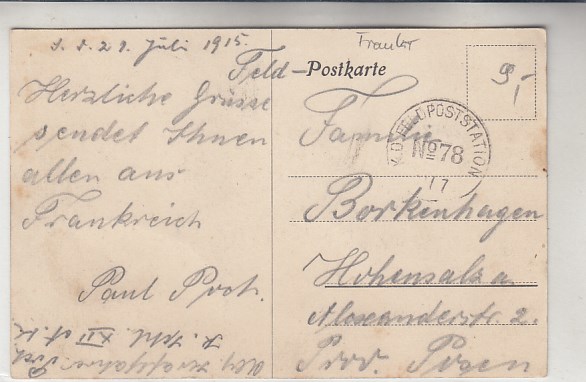 d. 21. Juli 1915.
Herzliche Grüsse
sendet Ihnen
allen aus
Frankreich
Paul
XII
Feld-Postkarte
9,-
K.D. FELDPOSTSTATION
No 78
17 7
Familie
Borkenhagen
Hohensalza
Alexanderstr. 2.
Prov. Posen